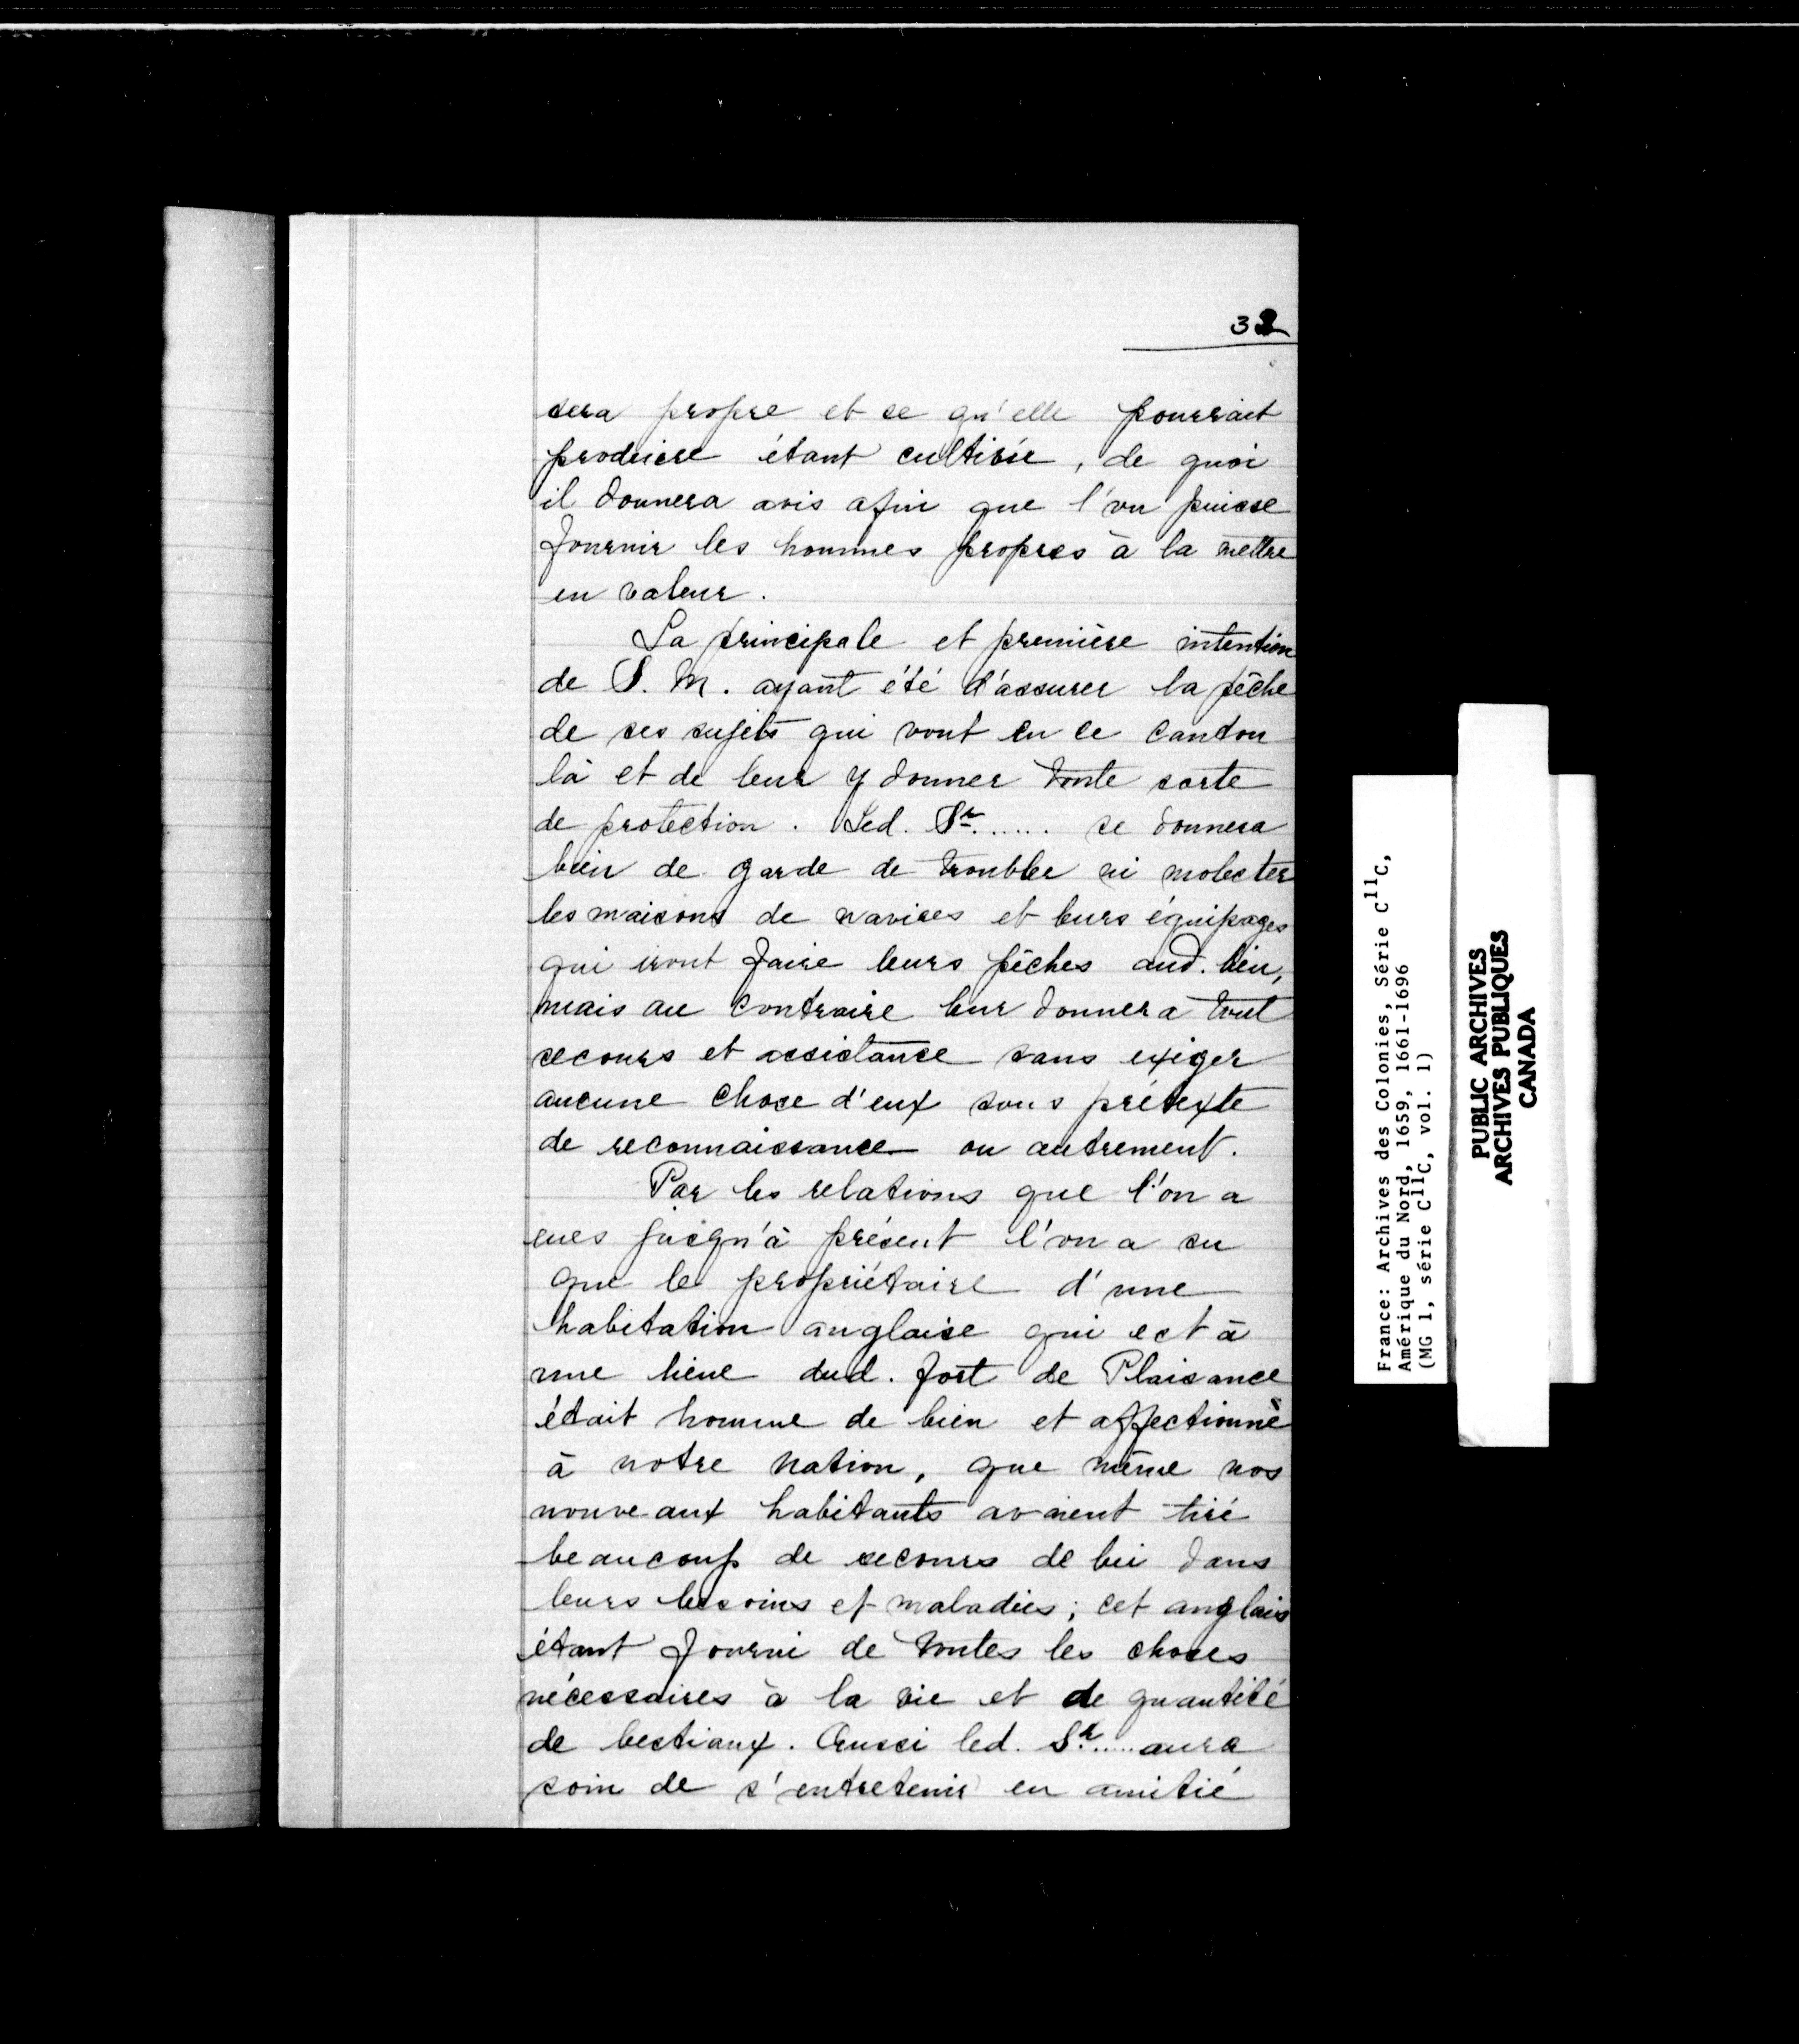 32
sera propre et ce qu'elle pourrait
produire étant cultivée, de quoi
il donnera avis afin que l'on puisse
fournir les hommes propres à la mettre
en valeur.
La principale et première intention
de S. M. ayant été d'assurer la pêche
de ses sujets qui vont en ce canton
là et de leur y donner toute sorte
de protection. Led. Sr...... se donnera
bien de garde de troubler ni molester
les maisons de navires et leurs équipages
qui iront faire leurs pêches aud. lieu,
mais au contraire leur donnera tout
secours et assistance sans exiger
aucune chose d'eux sous prétexte
de reconnaissance ou autrement.
Par les relations que l'on a
eues jusqu'à présent l'on a su
que le propriétaire d'une
habitation anglaise qui est à
une lieue dud. fort de Plaisance
était homme de bien et affectionné
à notre nation, que même nos
nouveaux habitants avaient tiré
beaucoup de secours de lui dans
leurs besoins et maladies; cet anglais
étant fourni de toutes les choses
nécessaires à la vie et de quantité
de bestiaux. Aussi led. Sr..... aura
soin de s'entretenir en amitié
France: Archives des Colonies, Série C11C,
Amérique du Nord, 1659, 1661-1696
(MG 1, série C11C, vol. 1)
PUBLIC ARCHIVES
ARCHIVES PUBLIQUES
CANADA